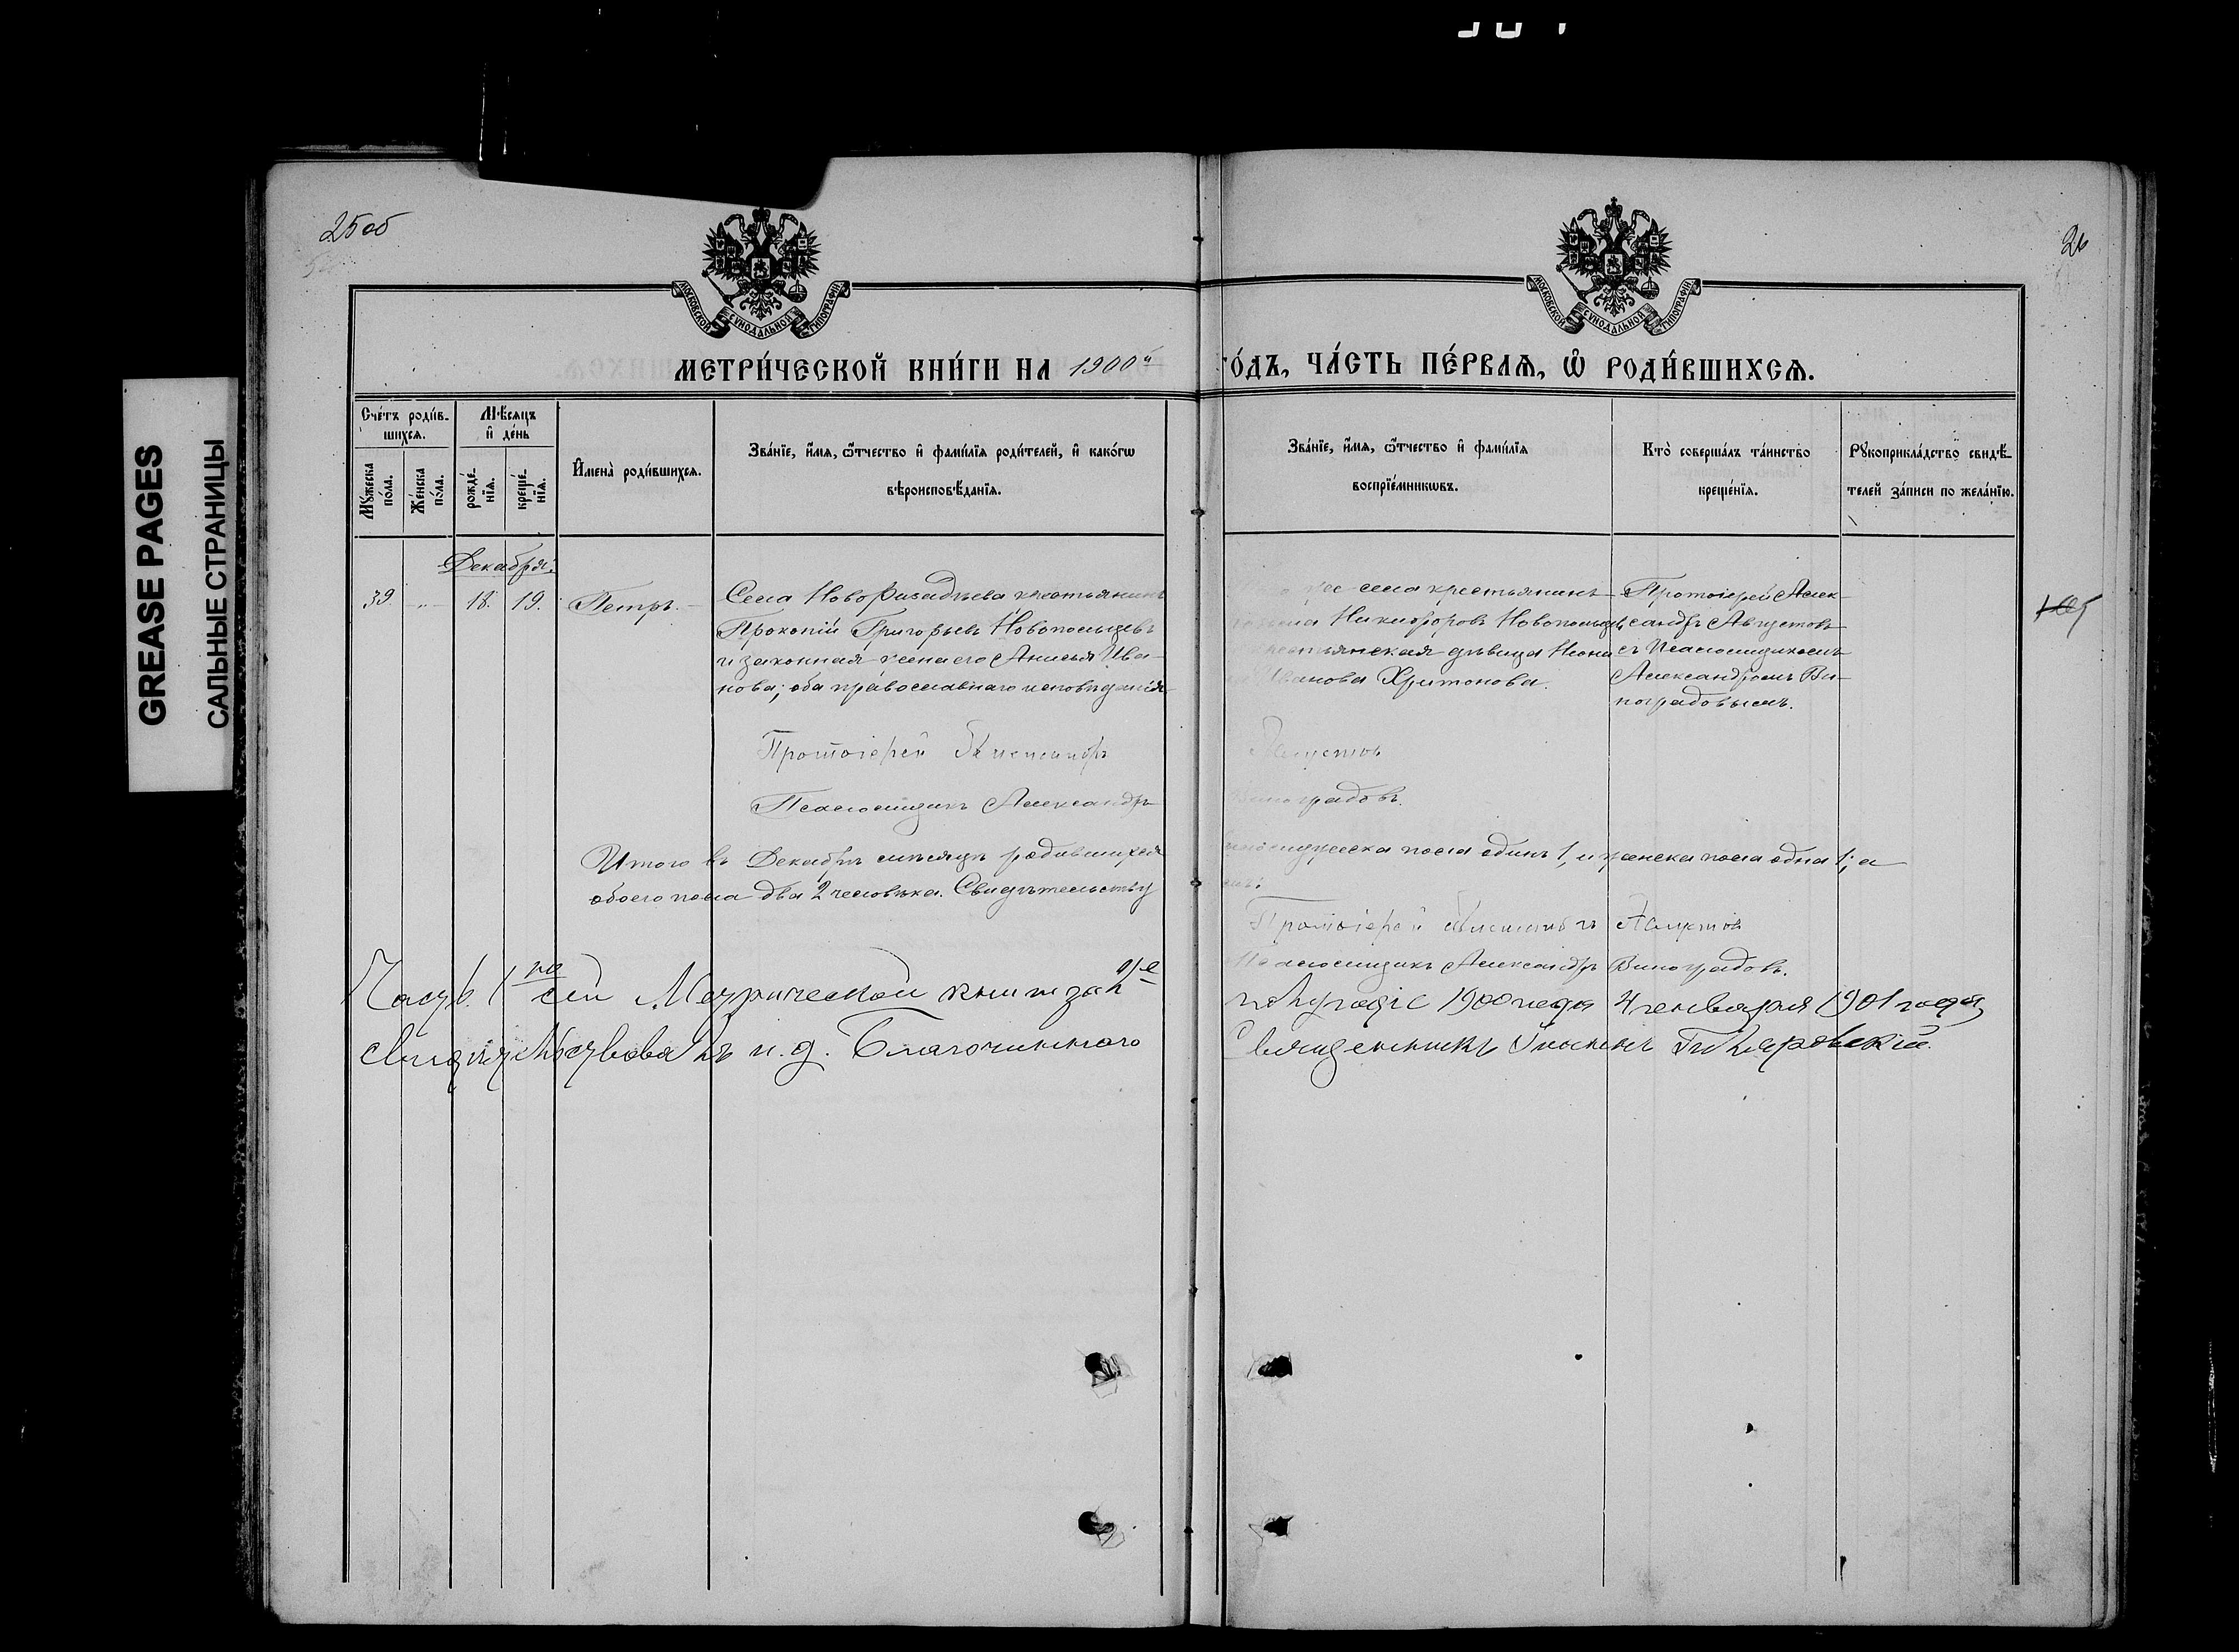 25 об
26
МОСКОВСКОЙ СѴНОДАЛЬНОЙ ТИПОГРАФІИ
МОСКОВСКОЙ СѴНОДАЛЬНОЙ ТИПОГРАФІИ
МЕТРИ́ЧЕСКОЙ КНИ́ГИ НА 1900й
ГО́ДЪ, ЧА́СТЬ ПЕ́РВАѦ, Ѡ҆ РОДИ́ВШИХСѦ.
Сче́тъ роди́вшихсѧ.
Мꙋ́жеска по́ла.
Же́нска по́ла.
Мѣ́сѧцъ и҆ де́нь
рожде́нїѧ.
креще́нїѧ.
И҆мена̀ роди́вшихсѧ.
Зва́нїе, и҆́мѧ, ѻ҆́тчество и҆ фами́лїѧ роди́телей, и҆ како́гѡ
вѣроисповѣ́данїѧ.
Зва́нїе, и҆́мѧ, ѻ҆́тчество и҆ фами́лїѧ
воспрїе́мникѡвъ.
Кто̀ соверша́лъ та́инство
креще́нїѧ.
Рꙋкоприкла́дство свидѣ́-
телей за́писи по жела́нїю.
Декабря:
39. " 18. 19. Петръ.
Села крестьянинъ
Прокопій Григорьевъ Новопольцевъ
и законная жена его Анисья Ива-
нова; оба православнаго исповѣданія
села крестьянинъ
Никифоровъ Новопольцевъ
крестьянская дѣвица
Иванова Харитонова.
Протоіерей Алек-
сандръ Августовъ
съ Псаломщикомъ
Александромъ Ви-
ноградовымъ.
Протоіерей Александръ
Августовъ
Псаломщикъ Александръ
Виноградовъ.
Итого въ Декабрѣ мѣсяцѣ родившихся
мужеска пола одинъ 1, и женска пола одна 1; а
обоего пола два 2 человѣка. Свидѣтельству
емъ:
Протоіерей Александръ Августовъ
Псаломщикъ Александръ Виноградовъ.
Часть 1ю сей Метрической книги за 2е
полугодіе 1900 года 4 января 1901 года
свидѣтельствовалъ и.д. Благочиннаго
Священникъ
GREASE PAGES
САЛЬНЫЕ СТРАНИЦЫ